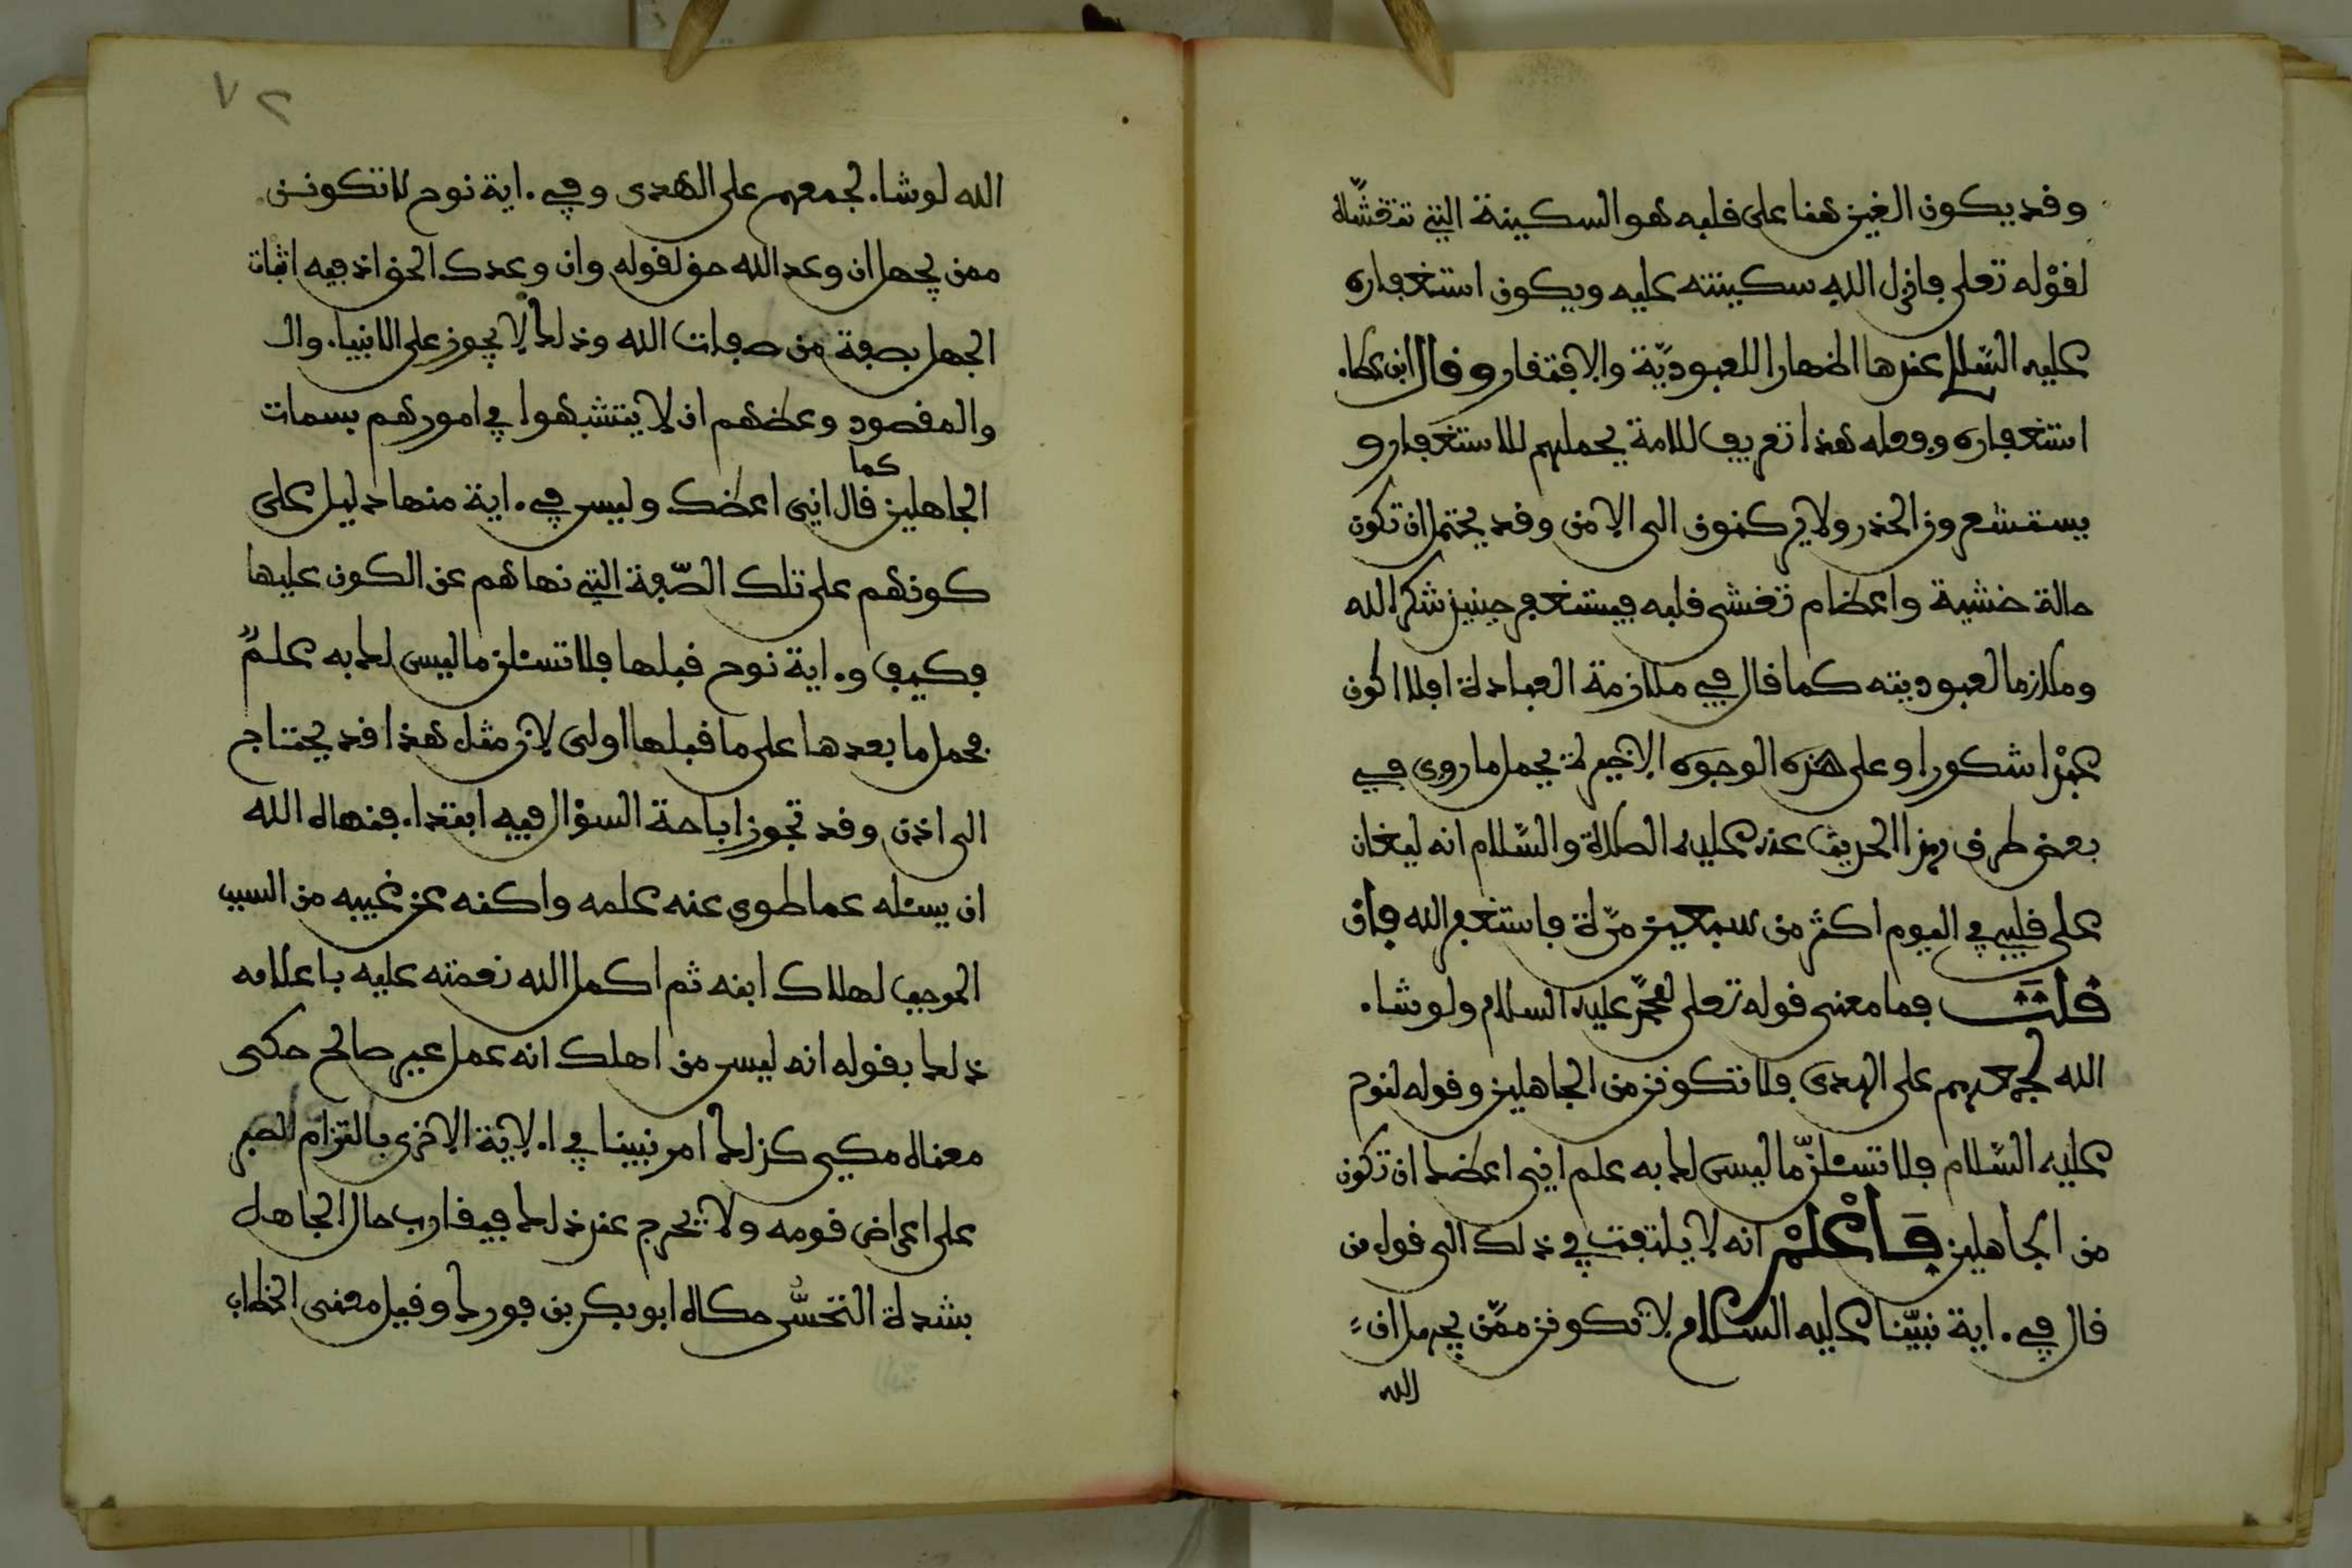 وقد يكون الغين هنا على قلبه هو السكينة التي تتغشاه
لقوله تعلى فانزل الله سكينته عليه ويكون استغفاره
عليه السلام عندها اظهارا للعبودية والافتقار وقال ابن عطاء
استغفاره وفعله هذا تعريف للامة يحملهم للاستغفار و
يستشعرون الحذر ولا يركنون الى الامن وقد يحتمل ان تكون
حالة خشية واعظام تغشى قلبه فيستغفر حينيذ شكرا لله
وملازما لعبوديته كما قال في ملازمة العبادة افلا اكون
عبدا شكورا وعلى هذه الوجوه الاخيرة يحمل ما روي في
بعض طرق هذا الحديث عنه عليه الصلاة والسلام انه ليغان
على قلبي في اليوم اكثر من سبعين مرة فاستغفر الله فان
قلت فما معنى قوله تعلى لمحمد عليه السلام ولو شاء
الله لجمعهم على الهدى فلا تكونن من الجاهلين وقوله لنوح
عليه السلام فلا تسئلن ما ليس لك به علم اني اعظك ان تكون
من الجاهلين فاعلم انه لا يلتفت في ذلك الى قول من
قال في ءاية نبينا عليه السلام لا تكونن ممن يجهل ان
الله
٧٢
الله لو شاء لجمعهم على الهدى وفي ءاية نوح لا تكونن
ممن يجهل ان وعد الله حق لقوله وان وعدك الحق اذ فيه اثبات
الجهل بصفة من صفات الله وذلك لا يجوز على الانبياء وال
والمقصود وعظهم ان لا يتشبهوا في امورهم بسمات
الجاهلين كما قال اني اعظك وليس في ءاية منها دليل على
كونهم على تلك الصفة التي نهاهم عن الكون عليها
فكيف وءاية نوح قبلها فلا تسئلن ما ليس لك به علم
فحمل ما بعدها على ما قبلها اولى لان مثل هذا قد يحتاج
الى اذن وقد تجوز اباحة السؤال فيه ابتداء فنهاه الله
ان يسئله عما طوى عنه علمه واكنه من غيبه من السبب
الموجب لهلاك ابنه ثم اكمل الله نعمته عليه باعلامه
ذلك بقوله انه ليس من اهلك انه عمل غير صالح حكى
معناه مكي كذلك امر نبينا في الاية الاخرى بالتزام الصبر
على اعراض قومه ولا يحرج عند ذلك فيقارب حال الجاهل
بشدة التحسر حكاه ابو بكر بن فورك وقيل معنى الخطاب